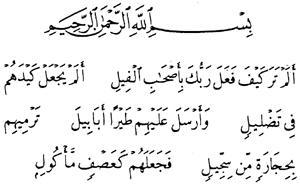 بِسۡمِ ٱللَّهِ ٱلرَّحۡمَٰنِ ٱلرَّحِيمِ
أَلَمۡ تَرَ كَيۡفَ فَعَلَ رَبُّكَ بِأَصۡحَٰبِ ٱلۡفِيلِ أَلَمۡ يَجۡعَلۡ كَيۡدَهُمۡ
فِي تَضۡلِيلٖ وَأَرۡسَلَ عَلَيۡهِمۡ طَيۡرًا أَبَابِيلَ تَرۡمِيهِم
بِحِجَارَةٖ مِّن سِجِّيلٖ فَجَعَلَهُمۡ كَعَصۡفٖ مَّأۡكُولِۭ